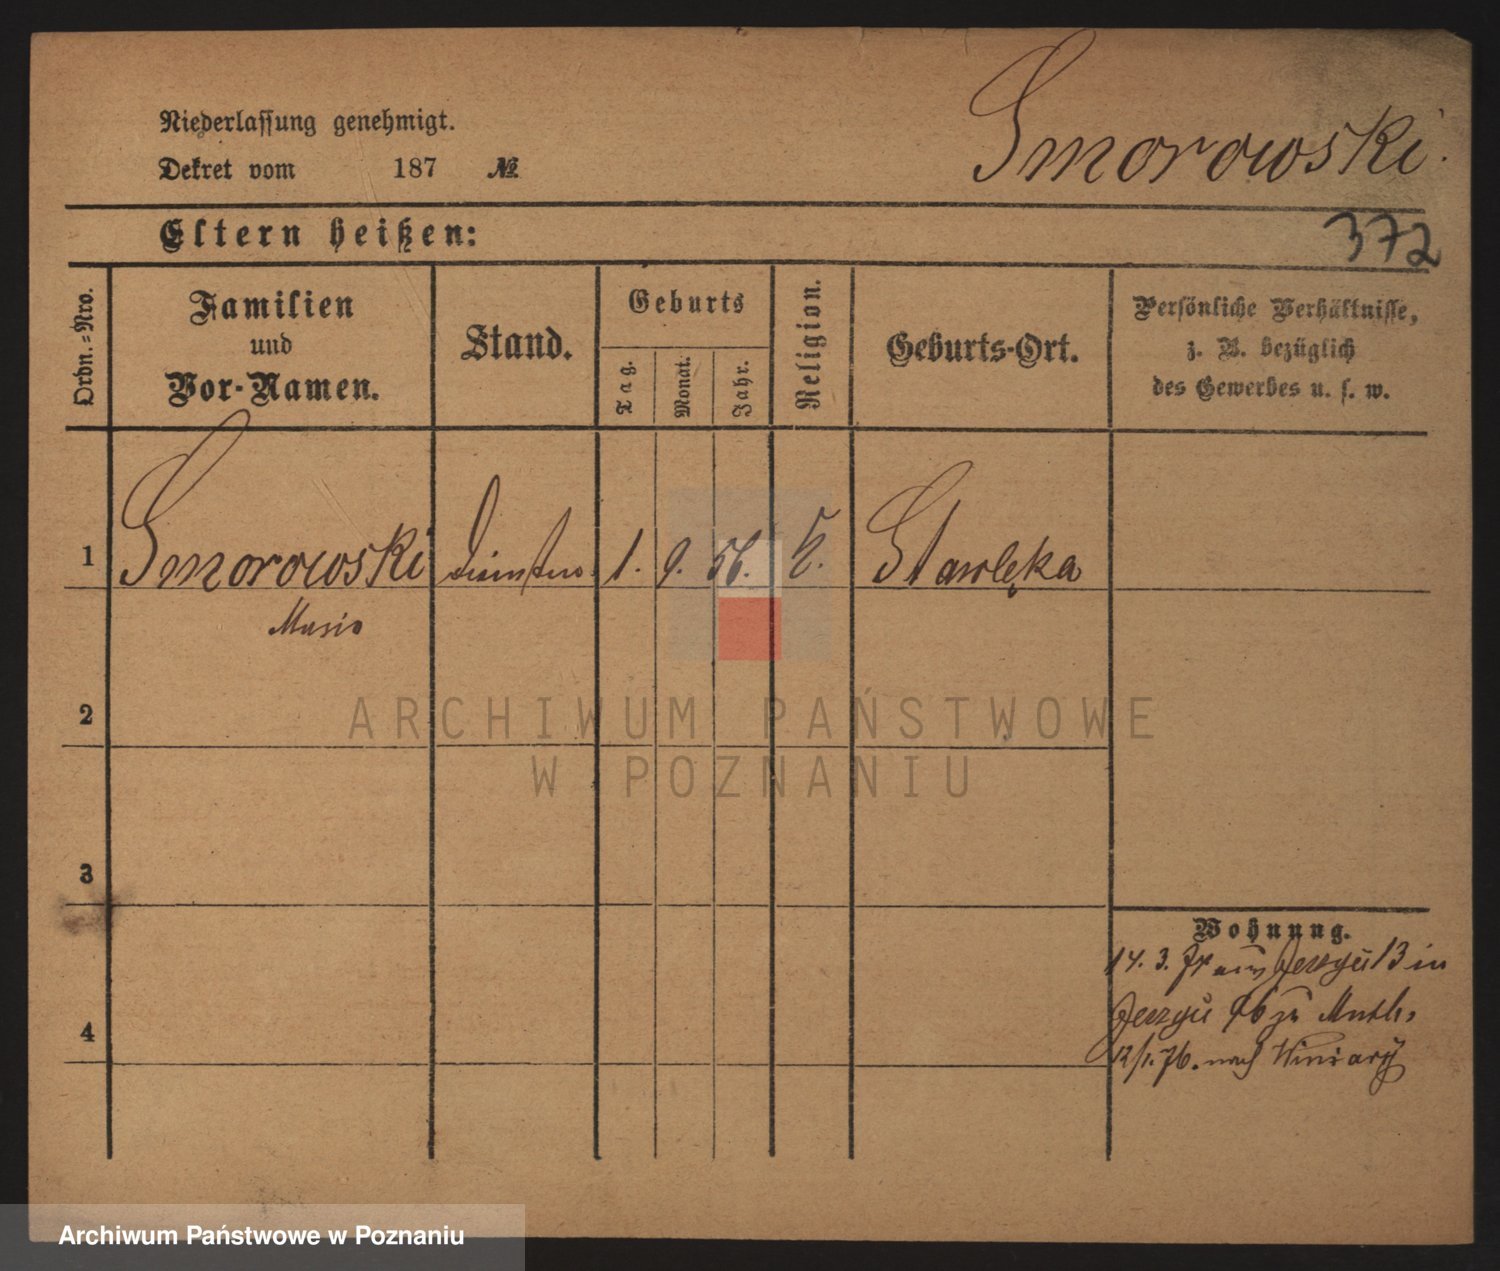 Smorowski.
Niederlassung genehmigt.
Dekret vom 187 №
Eltern heißen:
372
Ordn.-Nro.
Familien
und
Vor-Namen.
Stand.
Geburts
Tag.
Monat.
Jahr.
Religion.
Geburts-Ort.
Persönliche Verhältnisse,
z. B. bezüglich
des Gewerbes u. s. w.
1 Smorowski 1. 9. 56. k. Stawlęka
2
3
4
Wohnung.
14. 3. aus 13 in
zu Muth.
12/1. 76. nach Winiary
ARCHIWUM PAŃSTWOWE
W POZNANIU
Archiwum Państwowe w Poznaniu